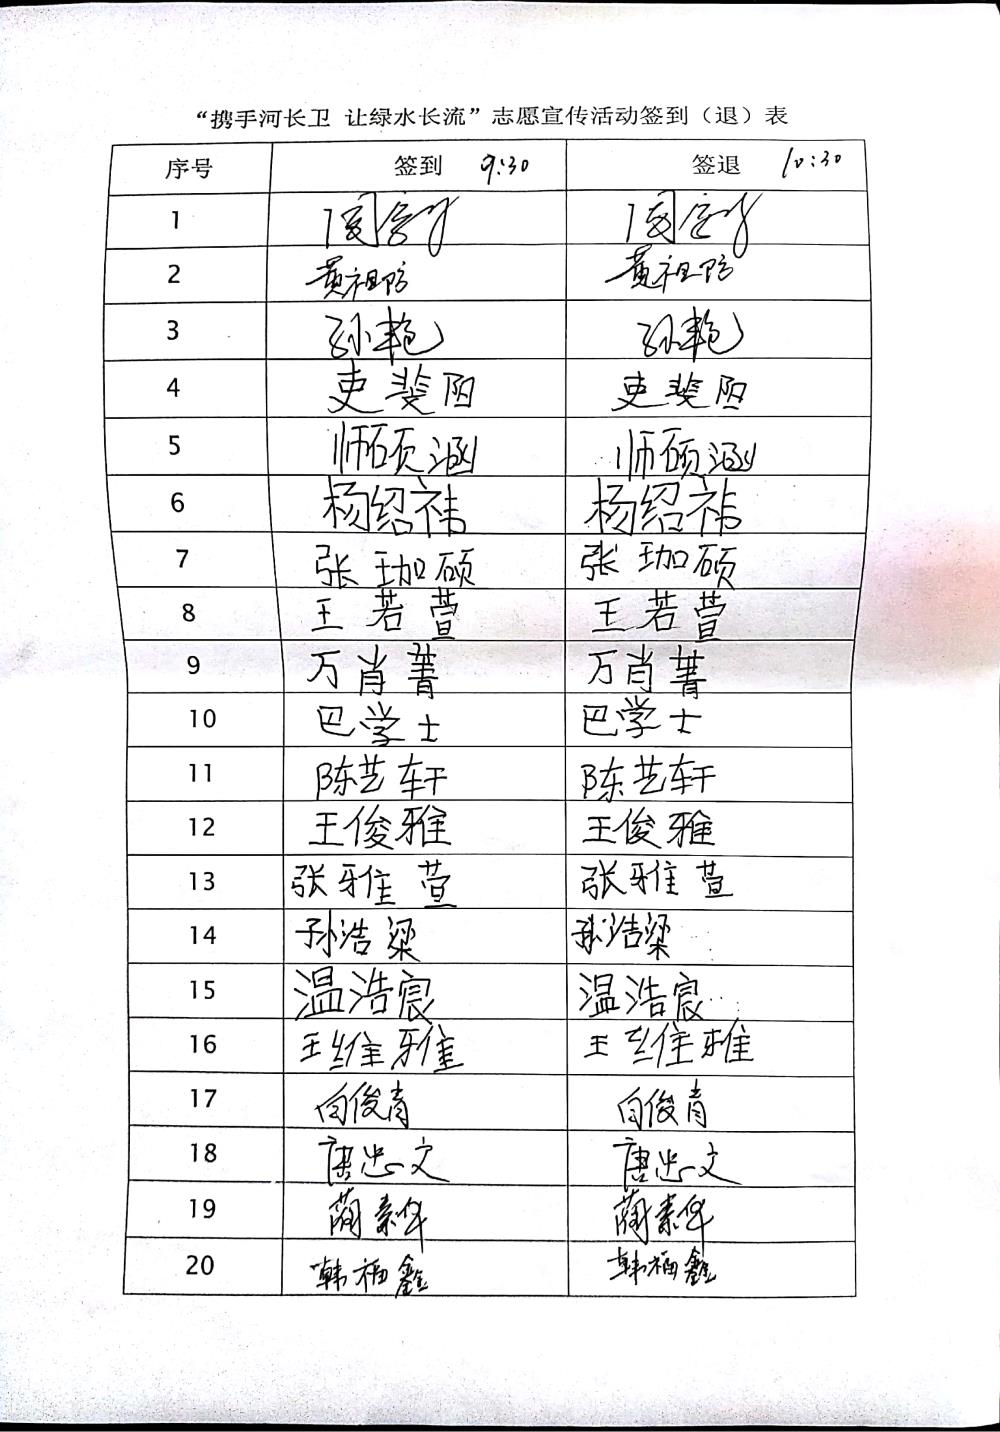 “携手河长卫 让绿水长流”志愿宣传活动签到（退）表
序号 签到 9:30 签退 10:30
1
2 黄祖防 黄祖防
3 孙艳 孙艳
4 吏斐阳 吏斐阳
5 师硕涵 师硕涵
6 杨绍祎 杨绍祎
7 张珈硕 张珈硕
8 王若萱 王若萱
9 万肖菁 万肖菁
10 巴学士 巴学士
11 陈艺轩 陈艺轩
12 王俊雅 王俊雅
13 张雅萱 张雅萱
14 孙浩梁 孙浩梁
15 温浩宸 温浩宸
16 王维雅 王维雅
17 向俊青 向俊青
18 唐忠文 唐忠文
19 蔺素华 蔺素华
20 韩福鑫 韩福鑫